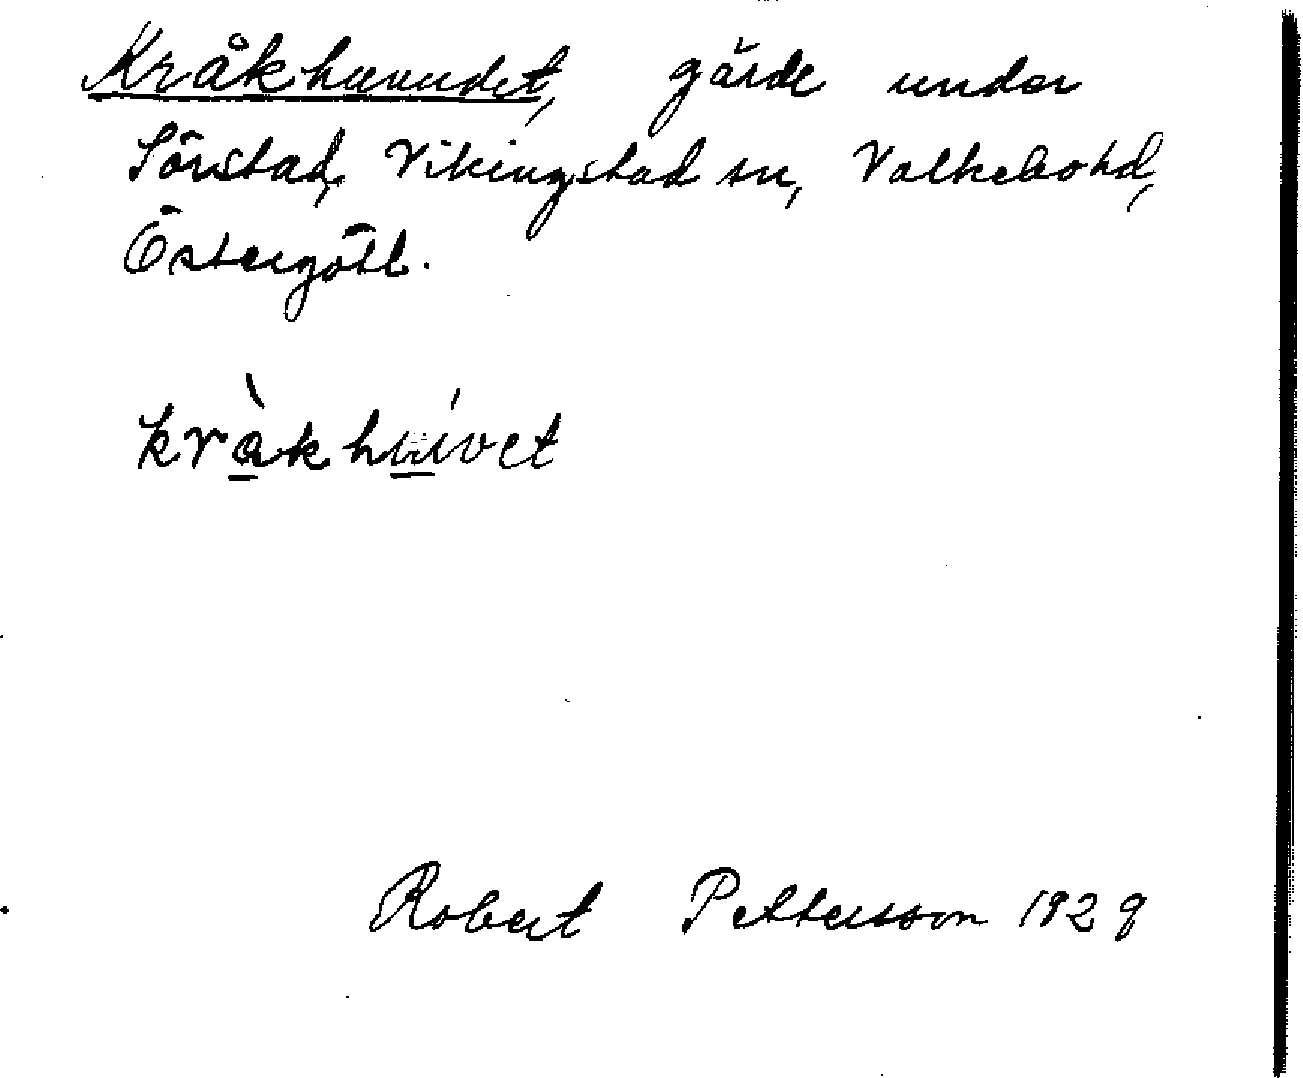 Kråkhuvudet, gärde under
Sörstad, Vikingstad sn, Valkebo hd,
Östergötl.
kråkhuvet
Robert Pettersson 1929